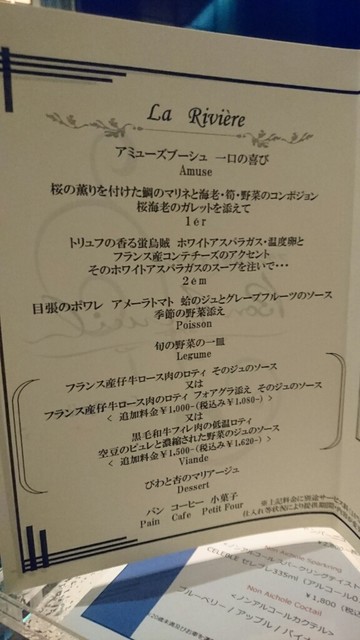 La Rivière
アミューズブーシュ 一口の喜び
Amuse
桜の薫りを付けた鯛のマリネと海老・筍・野菜のコンポジョン
桜海老のガレットを添えて
1ér
トリュフの香る蛍烏賊 ホワイトアスパラガス・温度卵と
フランス産コンテチーズのアクセント
そのホワイトアスパラガスのスープを注いで・・・
2ém
目張のポワレ アメーラトマト 蛤のジュとグレープフルーツのソース
季節の野菜添え
Poisson
旬の野菜の一皿
Legume
フランス産仔牛ロース肉のロティ そのジュのソース
又は
フランス産仔牛ロース肉のロティ フォアグラ添え そのジュのソース
< 追加料金￥1,000-(税込み￥1,080-) >
又は
黒毛和牛フィレ肉の低温ロティ
空豆のピュレと濃縮された野菜のジュのソース
< 追加料金￥1,500-(税込み￥1,620-) >
Viande
びわと杏のマリアージュ
Dessert
パン コーヒー 小菓子
Pain Cafe Petit Four
※上記料金に別途サービス
仕入れ等状況により提供期間
CELEBRE セレブレ335ml (アルコール0.
￥1,800 (税込
Non Alchole Coctail
<ノンアルコールカクテル>
ブルーベリー / アップル / パイ